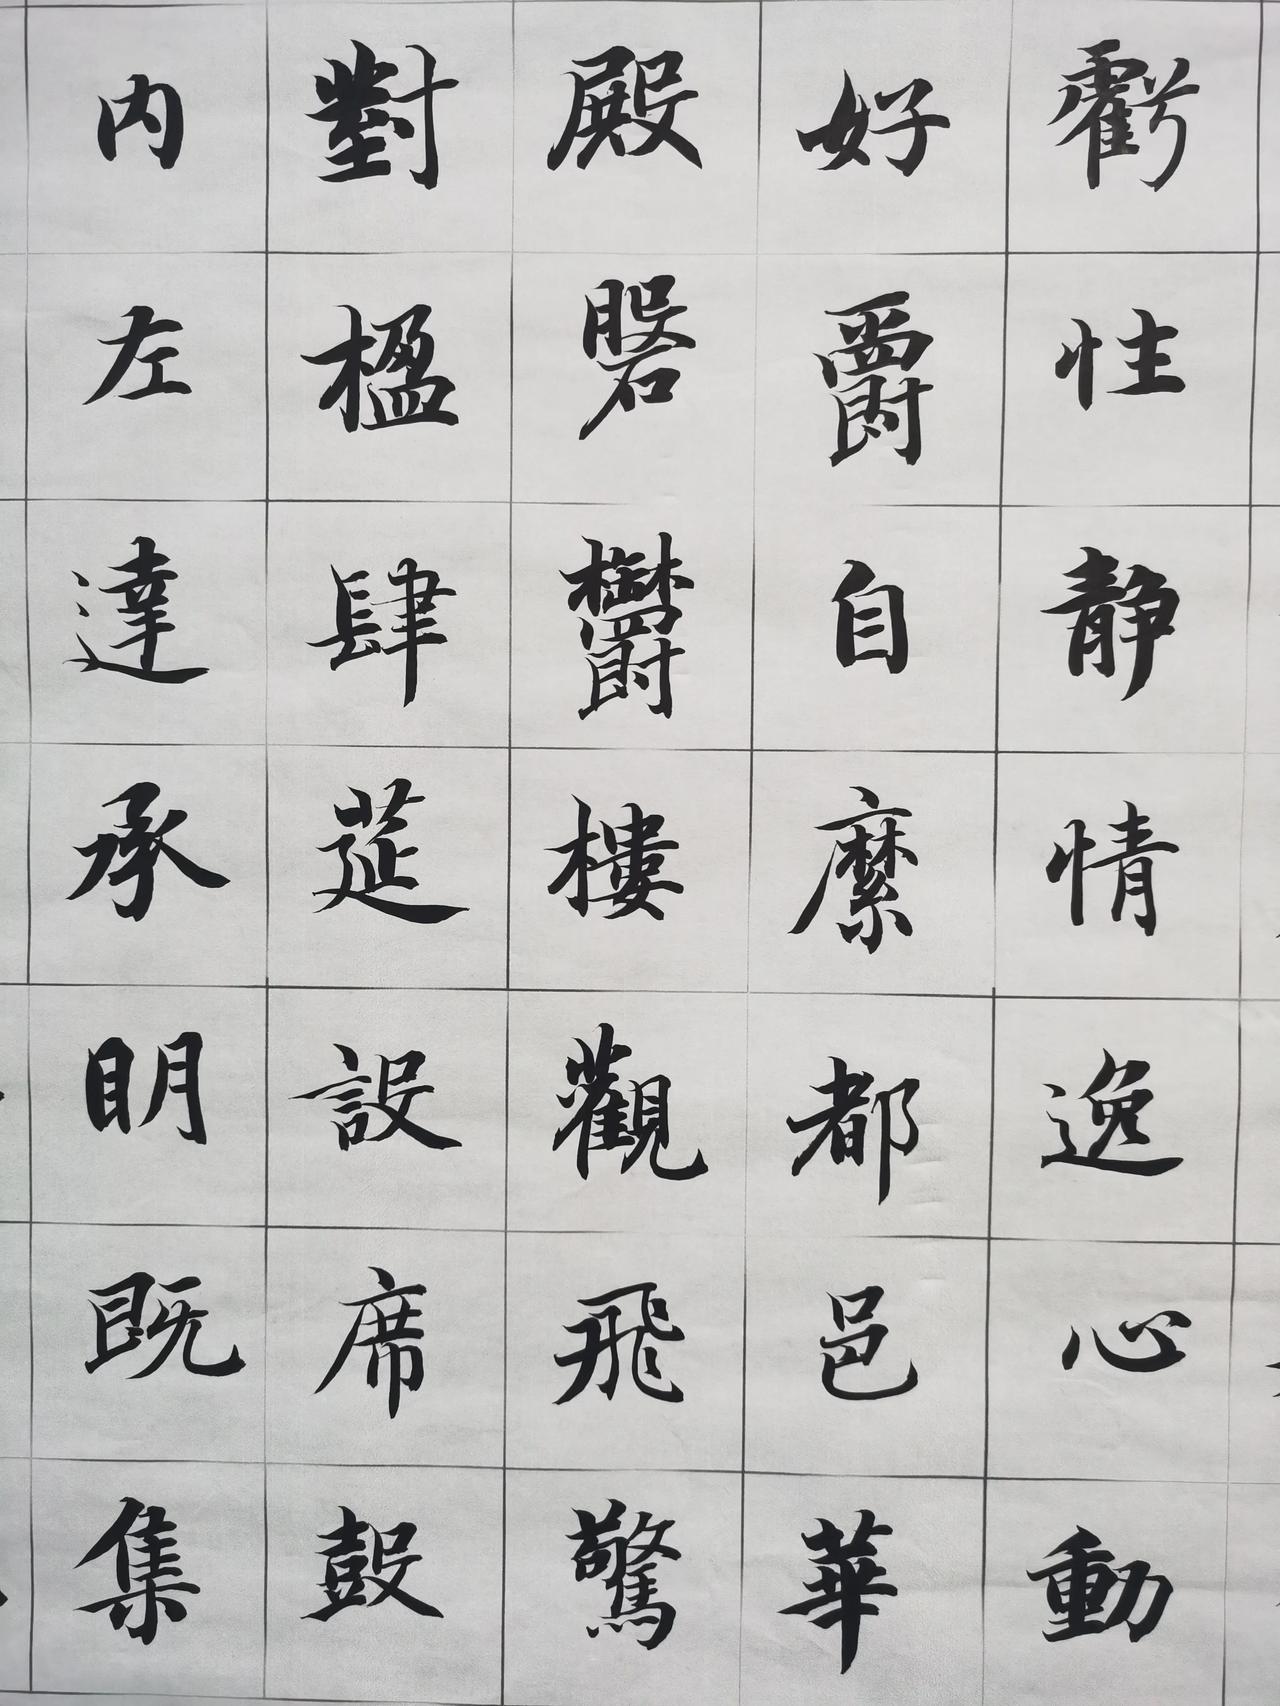 虧性靜情逸心動
好爵自縻都邑華
殿磐鬱樓觀飛驚
對楹肆筵設席鼓
内左達承明既集